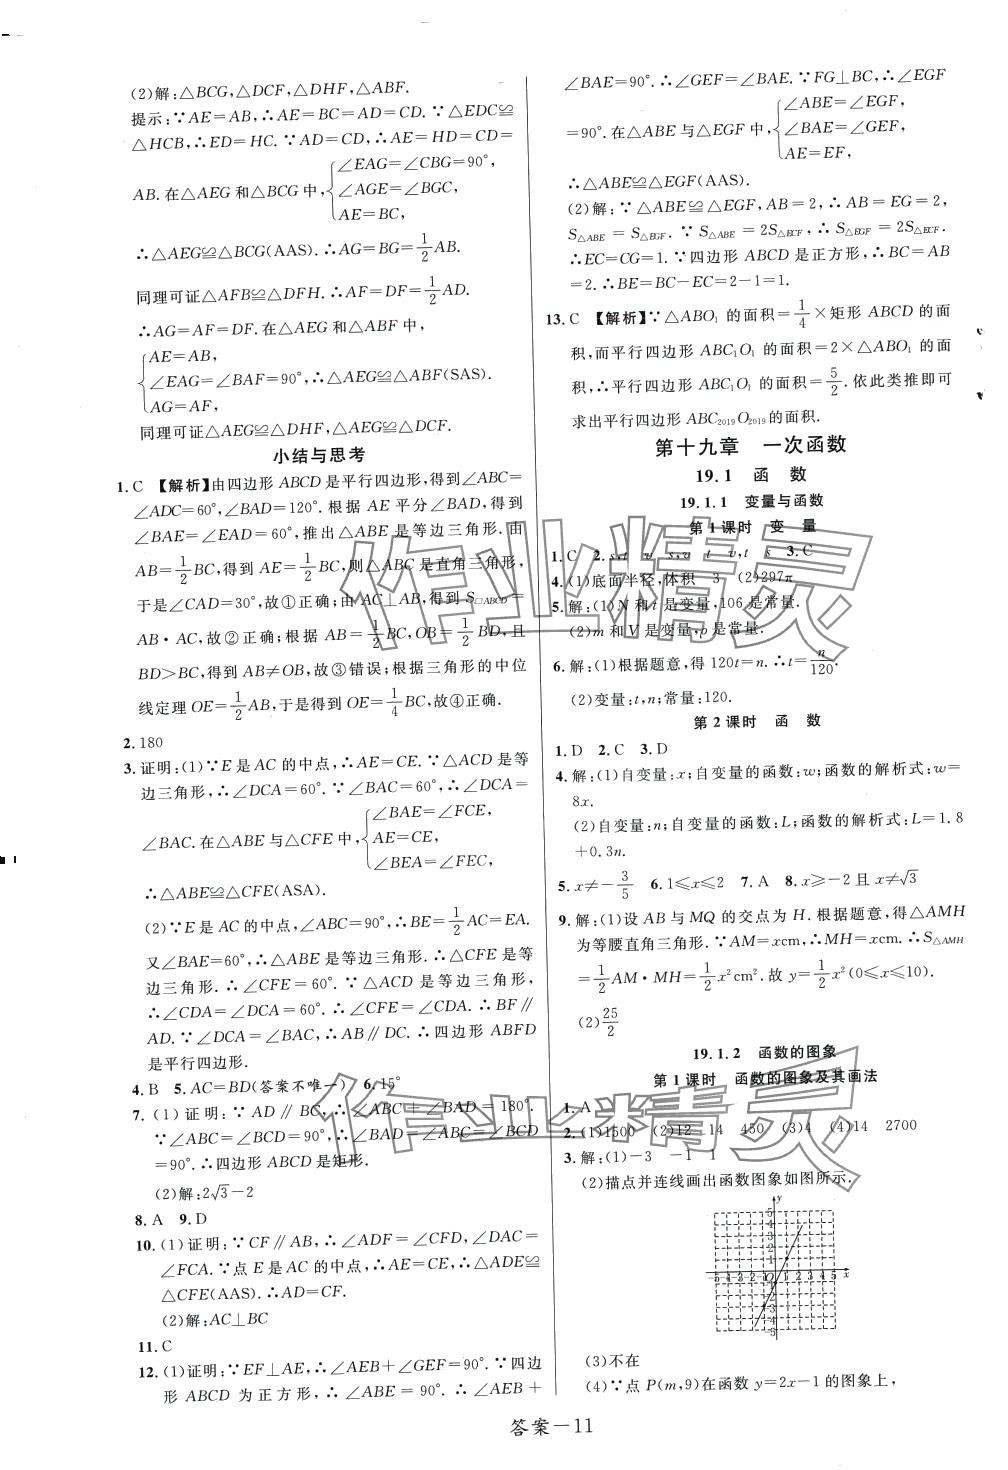 (2)解:△BCG,△DCF,△DHF,△ABF.
提示:∵AE=AB,∴AE=BC=AD=CD.∵△EDC≌
△HCB,∴ED=HC.∵AD=CD,∴AE=HD=CD=
AB.在△AEG和△BCG中,{∠EAG=∠CBG=90°,
∠AGE=∠BGC,
AE=BC,
∴△AEG≌△BCG(AAS).∴AG=BG=1/2AB.
同理可证△AFB≌△DFH.∴AF=DF=1/2AD.
∴AG=AF=DF.在△AEG和△ABF中,
{AE=AB,
∠EAG=∠BAF=90°,∴△AEG≌△ABF(SAS).
AG=AF,
同理可证△AEG≌△DHF,△AEG≌△DCF.
小结与思考
1.C 【解析】由四边形ABCD是平行四边形,得到∠ABC=
∠ADC=60°,∠BAD=120°.根据AE平分∠BAD,得到
∠BAE=∠EAD=60°,推出△ABE是等边三角形.由
AB=1/2BC,得到AE=1/2BC,则△ABC是直角三角形,
于是∠CAD=30°,故①正确;由AC⊥AB,得到S▱ABCD=
AB·AC,故②正确;根据AB=1/2BC,OB=1/2BD,且
BD>BC,得到AB≠OB,故③错误;根据三角形的中位
线定理OE=1/2AB,于是得到OE=1/4BC,故④正确.
2.180
3.证明:(1)∵E是AC的中点,∴AE=CE.∵△ACD是等
边三角形,∴∠DCA=60°.∵∠BAC=60°,∴∠DCA=
∠BAC.在△ABE与△CFE中,{∠BAE=∠FCE,
AE=CE,
∠BEA=∠FEC,
∴△ABE≌△CFE(ASA).
(2)∵E是AC的中点,∠ABC=90°,∴BE=1/2AC=EA.
又∠BAE=60°,∴△ABE是等边三角形.∴△CFE是等
边三角形.∴∠CFE=60°.∵△ACD是等边三角形,
∴∠CDA=∠DCA=60°.∴∠CFE=∠CDA.∴BF∥
AD.∵∠DCA=∠BAC,∴AB∥DC.∴四边形ABFD
是平行四边形.
4.B 5.AC=BD(答案不唯一) 6.15°
7.(1)证明:∵AD∥BC,∴∠ABC+∠BAD=180°.
∵∠ABC=∠BCD=90°,∴∠BAD=∠ABC=∠BCD
=90°.∴四边形ABCD是矩形.
(2)解:2√3-2
8.A 9.D
10.(1)证明:∵CF∥AB,∴∠ADF=∠CFD,∠DAC=
∠FCA.∵点E是AC的中点,∴AE=CE,∴△ADE≌
△CFE(AAS).∴AD=CF.
(2)解:AC⊥BC
11.C
12.(1)证明:∵EF⊥AE,∴∠AEB+∠GEF=90°.∵四边
形ABCD为正方形,∴∠ABE=90°.∴∠AEB+
∠BAE=90°.∴∠GEF=∠BAE.∵FG⊥BC,∴∠EGF
=90°.在△ABE与△EGF中,{∠ABE=∠EGF,
∠BAE=∠GEF,
AE=EF,
∴△ABE≌△EGF(AAS).
(2)解:∵△ABE≌△EGF,AB=2,∴AB=EG=2,
S△ABE=S△EGF.∵S△ABE=2S△ECF,∴S△EGF=2S△ECF.
∴EC=CG=1.∵四边形ABCD是正方形,∴BC=AB
=2.∴BE=BC-EC=2-1=1.
13.C 【解析】∵△ABO₁的面积=1/4×矩形ABCD的面
积,而平行四边形ABC₁O₁的面积=2×△ABO₁的面
积,∴平行四边形ABC₁O₁的面积=5/2.依此类推即可
求出平行四边形ABC₂₀₁₉O₂₀₁₉的面积.
第十九章 一次函数
19.1 函 数
19.1.1 变量与函数
第1课时 变 量
1.C 2.s,t v s,v t v,t s 3.C
4.(1)底面半径,体积 3 (2)297π
5.解:(1)N和t是变量,106是常量.
(2)m和V是变量,ρ是常量.
6.解:(1)根据题意,得120t=n.∴t=n/120.
(2)变量:t,n;常量:120.
第2课时 函 数
1.D 2.C 3.D
4.解:(1)自变量:x;自变量的函数:w;函数的解析式:w=
8x.
(2)自变量:n;自变量的函数:L;函数的解析式:L=1.8
+0.3n.
5.x≠-3/5 6.1≤x≤2 7.A 8.x≥-2且x≠√3
9.解:(1)设AB与MQ的交点为H.根据题意,得△AMH
为等腰直角三角形.∵AM=xcm,∴MH=xcm.∴S△AMH
=1/2AM·MH=1/2x²cm².故y=1/2x²(0≤x≤10).
(2)25/2
19.1.2 函数的图象
第1课时 函数的图象及其画法
1.A
2.(1)1500 (2)12 14 450 (3)4 (4)14 2700
3.解:(1)-3 -1 1
(2)描点并连线画出函数图象如图所示.
y
5
4
3
2
1
-5-4-3-2-1 O 1 2 3 4 5 x
-2
-3
-4
-5
(3)不在
(4)∵点P(m,9)在函数y=2x-1的图象上,
答案-11
作业精灵
作业精灵